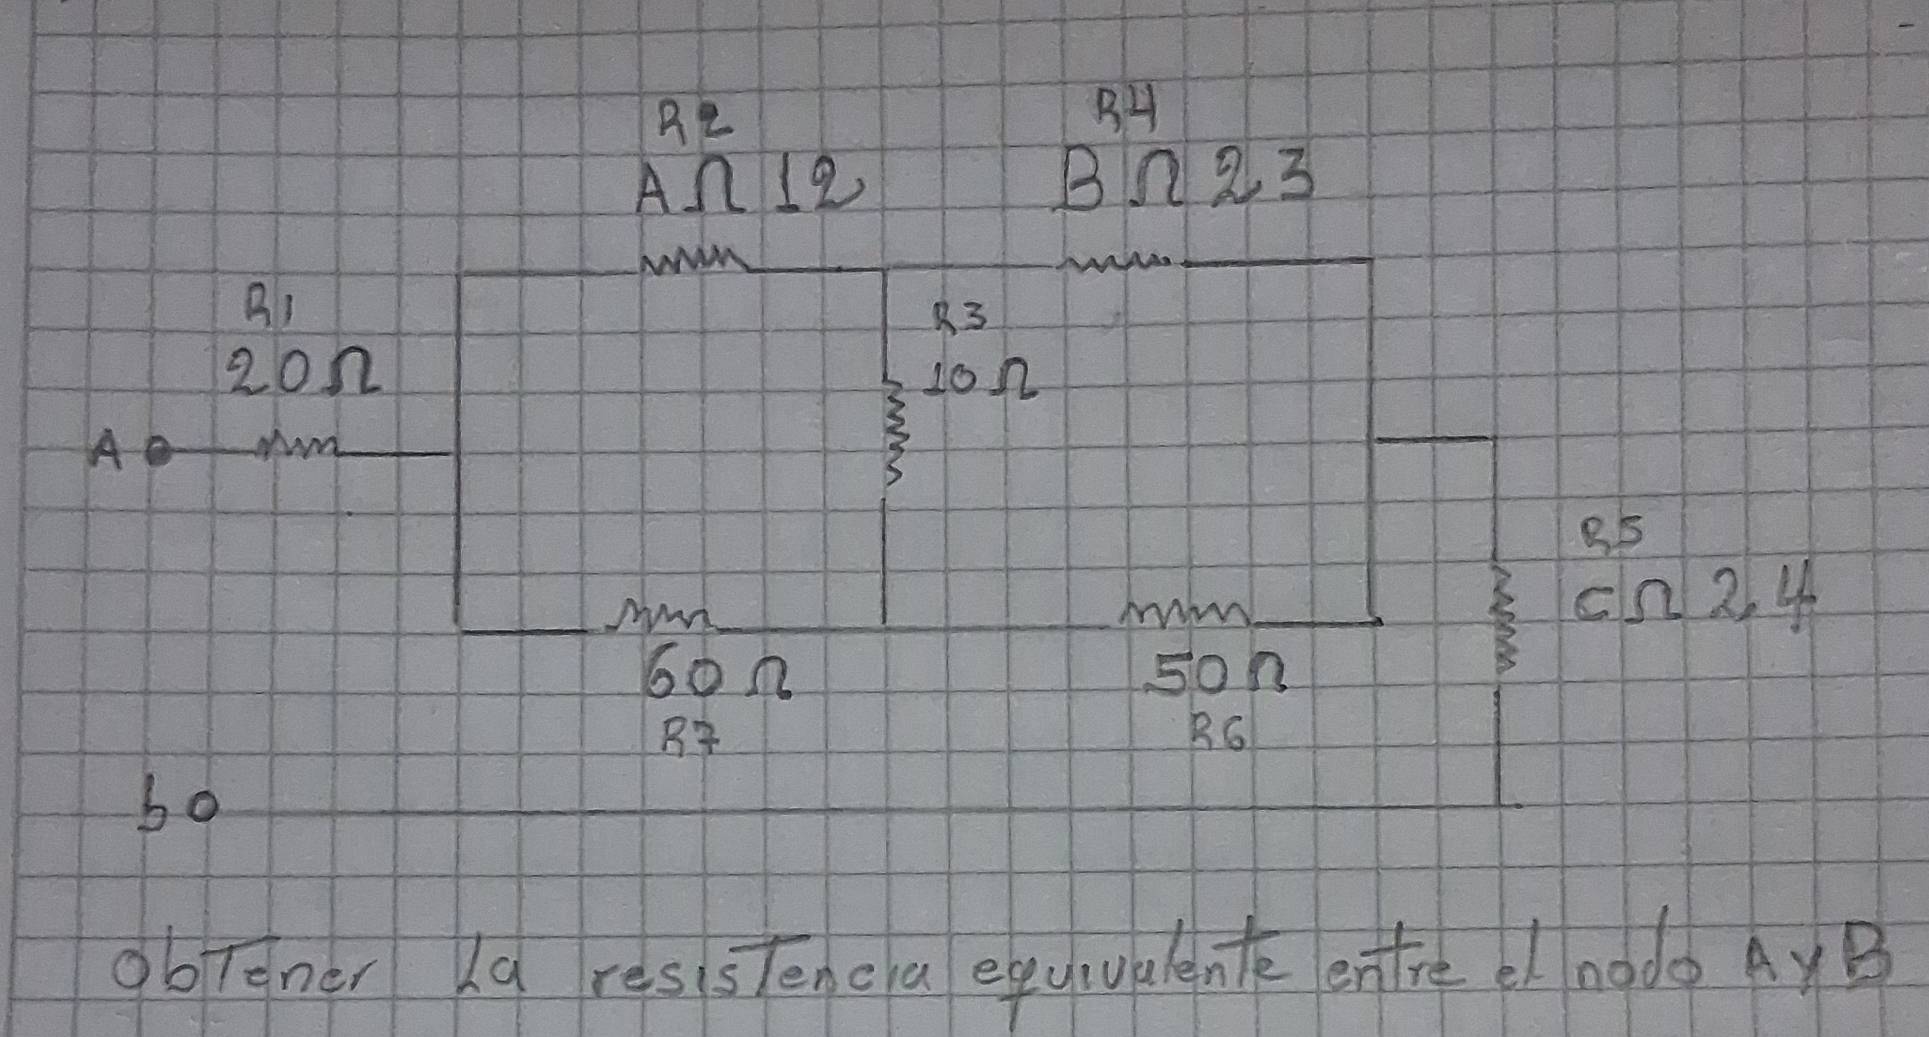 R2
AΩ 12
R4
BΩ 23
R1
20Ω
R3
10Ω
A
R5
CΩ 24
60Ω
R7
50Ω
R6
b
obTener La resisTencia equivalente entre el nodo A y B